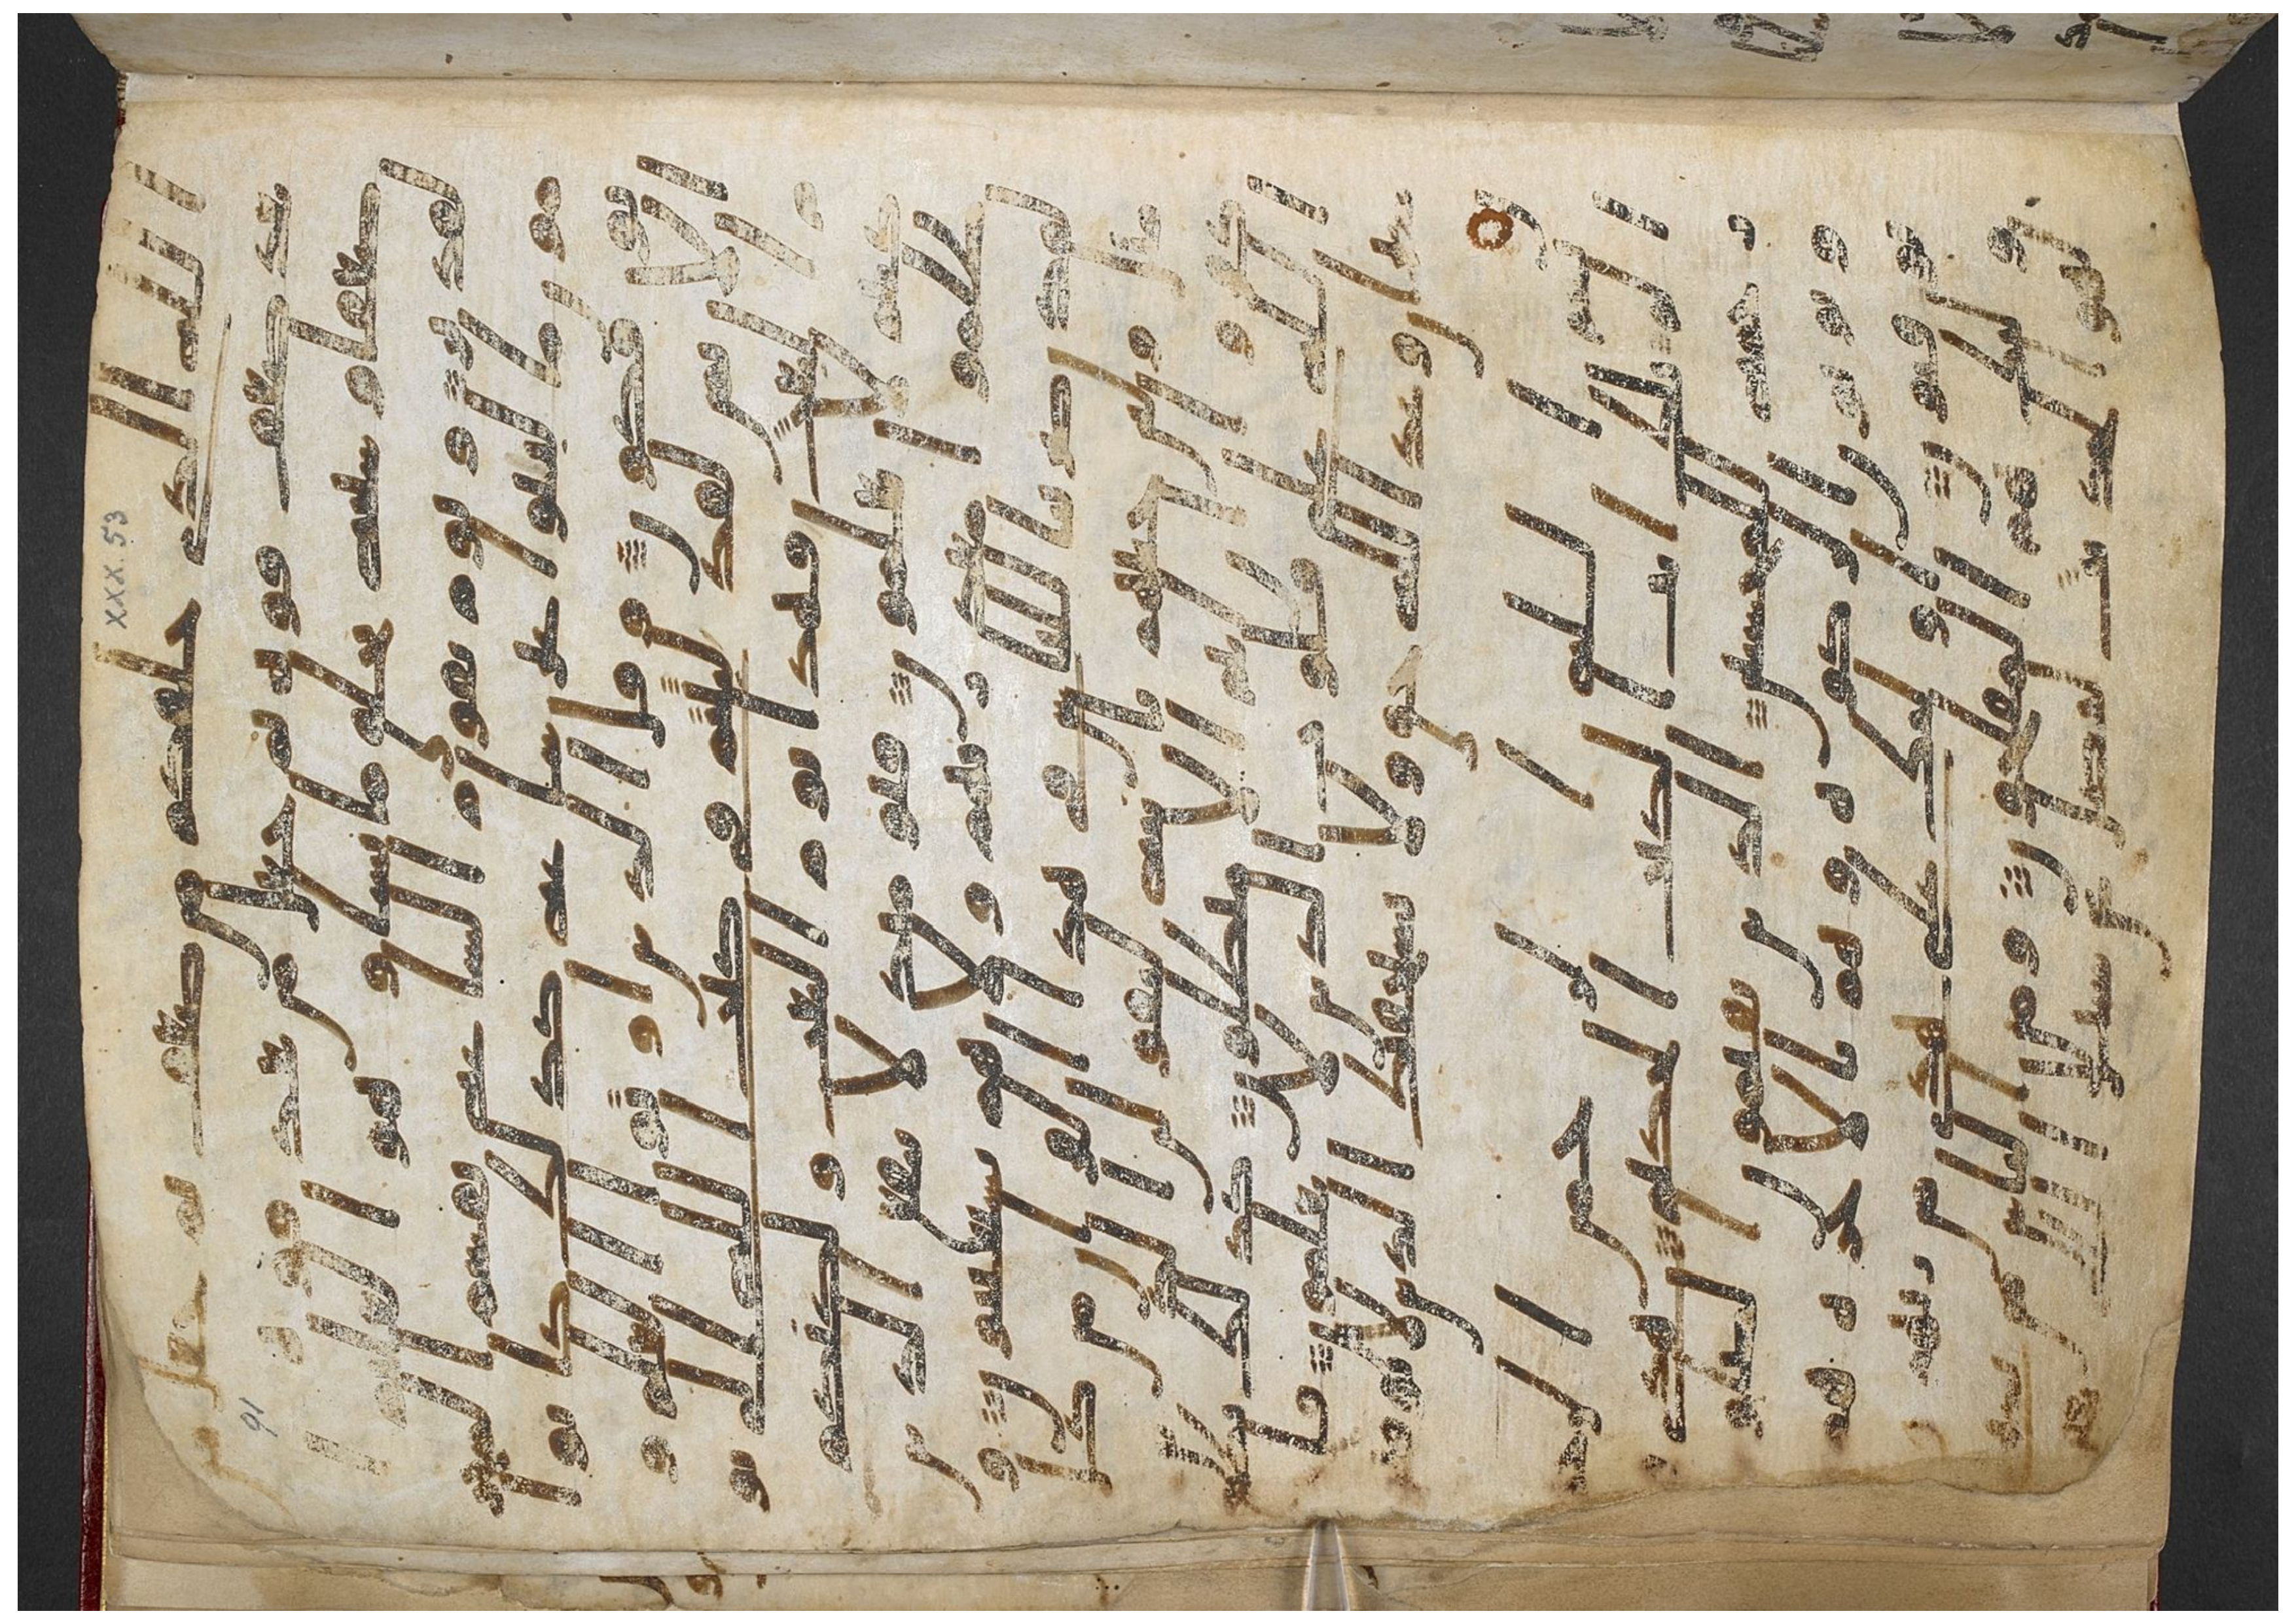 الله الذى خلقكم من ضعف ثم جعل من
بعد ضعف قوة ثم جعل من بعد قوة
ضعفا وشيبة يخلق ما يشا وهو العليم ا
لقدير ويوم تقوم الساعة يقسم المجر
مون ما لبثوا غير ساعة كذلك كانوا
يوفكون وقال الذين اوتوا العلم و
الايمن لقد لبثتم فى كتب الله الى يو
م البعث فهذا يوم البعث ولكنكم
كنتم لا تعلمون فيومئذ لا ينفع الذين
ظلموا معذرتهم ولا هم يستعتبون و
لقد ضربنا للناس فى هذا القران من كل
مثل ولئن جئتهم باية ليقولن الذين كفر
وا ان انتم الا مبطلون كذلك يطبع
الله على قلوب الذين لا يعلمون فا
صبر ان وعد الله حق ولا يستخفنك الذين لا يوقنون
بسم الله الرحمن الرحيم
الم تلك ايت الكتب الحكيم هد
ى ورحمة للمحسنين الذين يقيمون الصلو
ة ويوتون الزكوة وهم بالاخرة هم
يوقنون اولئك على هدى من ربهم و
اولئك هم المفلحون ومن الناس من
يشترى لهو الحديث ليضل عن سبيل الله بغير
xxx. 53
91